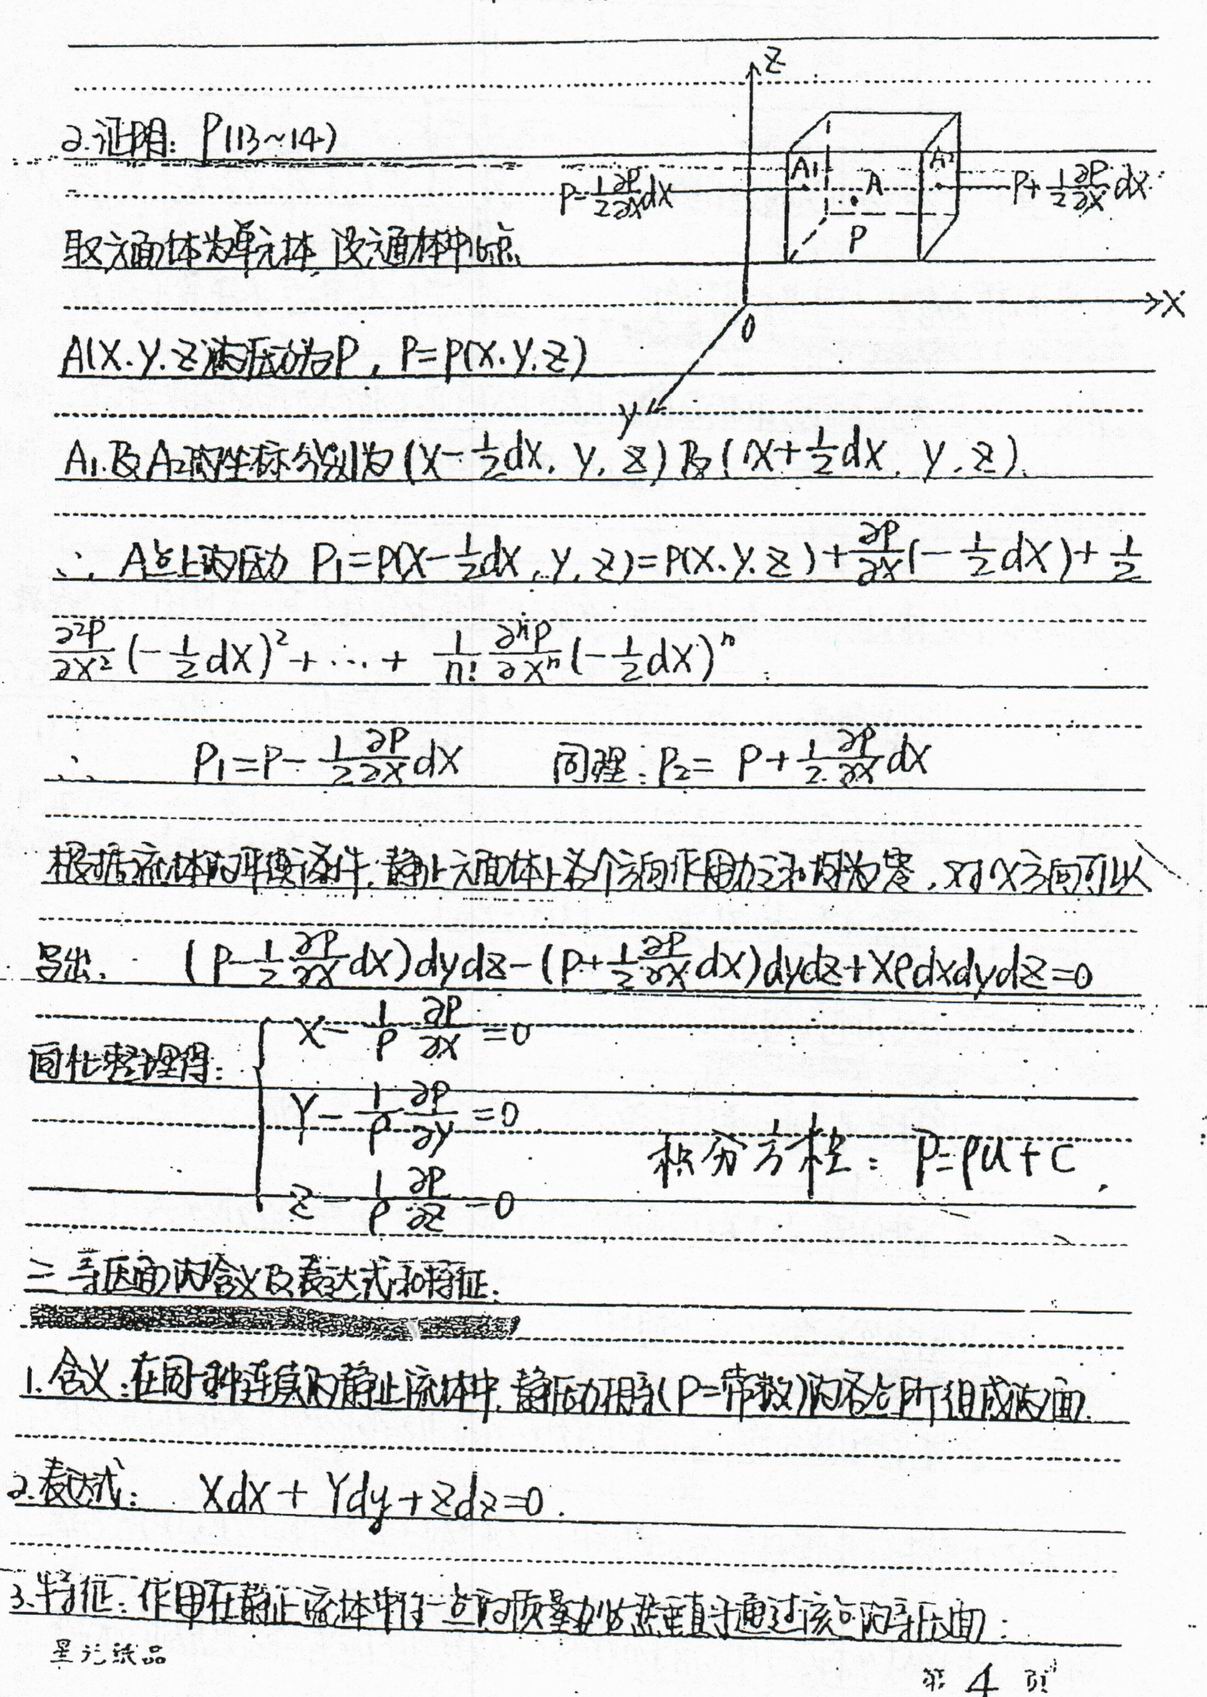 2.证明: P(13~14)
Z
A1
A
A2
P-1/2 ∂P/∂x dx
P+1/2 ∂P/∂x dx
P
X
0
Y
取六面体为单元体,设六面体中心点
A(x.y.z)的压力为P, P=P(x.y.z)
A1及A2的坐标分别为(x-1/2dx, y, z)及(x+1/2dx, y, z).
∴ A点上的压力 P1=P(x-1/2dx, y, z)=P(x.y.z)+∂P/∂x(-1/2dx)+1/2
∂²P/∂x²(-1/2dx)²+…+ 1/n! ∂ⁿP/∂xⁿ(-1/2dx)ⁿ
∴ P1=P-1/2 ∂P/∂x dx 同理: P2=P+1/2 ∂P/∂x dx
根据流体的平衡条件,静止六面体上各个方向作用力之和均为零,对x方向可以
导出: (P-1/2 ∂P/∂x dx)dydz-(P+1/2 ∂P/∂x dx)dydz+Xρdxdydz=0
同化整理得: X-1/ρ ∂P/∂x=0
Y-1/ρ ∂P/∂y=0
Z-1/ρ ∂P/∂z=0
积分方程: P=ρu+C
三 等压面的含义及表达式和特征.
1.含义:在同种连续的静止流体中,静压力相等(P=常数)的各点所组成的面.
2.表达式: Xdx+Ydy+Zdz=0.
3.特征:作用在静止流体中任一点的质量力必然垂直于通过该点的等压面.
星光纸品
第 4 页